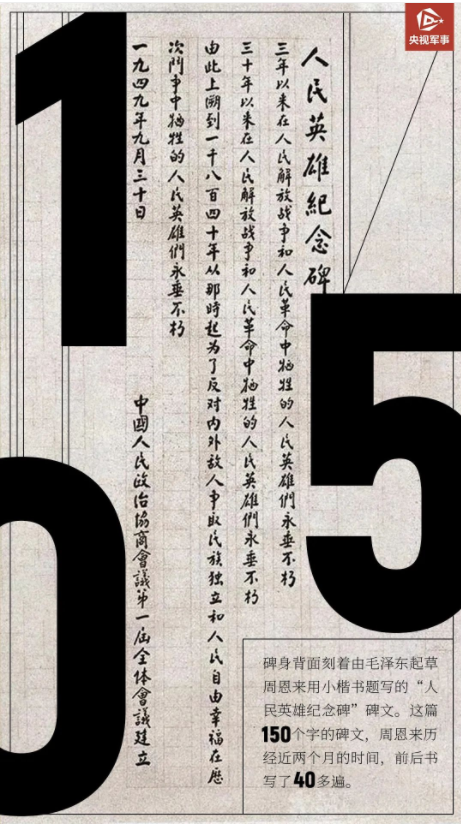 央视军事
150
人民英雄紀念碑
三年以来在人民解放战争和人民革命中牺牲的人民英雄們永垂不朽
三十年以来在人民解放战争和人民革命中牺牲的人民英雄們永垂不朽
由此上溯到一千八百四十年从那時起为了反对内外敌人争取民族独立和人民自由幸福在歷
次鬥争中牺牲的人民英雄們永垂不朽
一九四九年九月三十日 中國人民政治協商會議第一届全体會議建立
碑身背面刻着由毛泽东起草
周恩来用小楷书题写的“人
民英雄纪念碑”碑文。这篇
150个字的碑文，周恩来历
经近两个月的时间，前后书
写了40多遍。